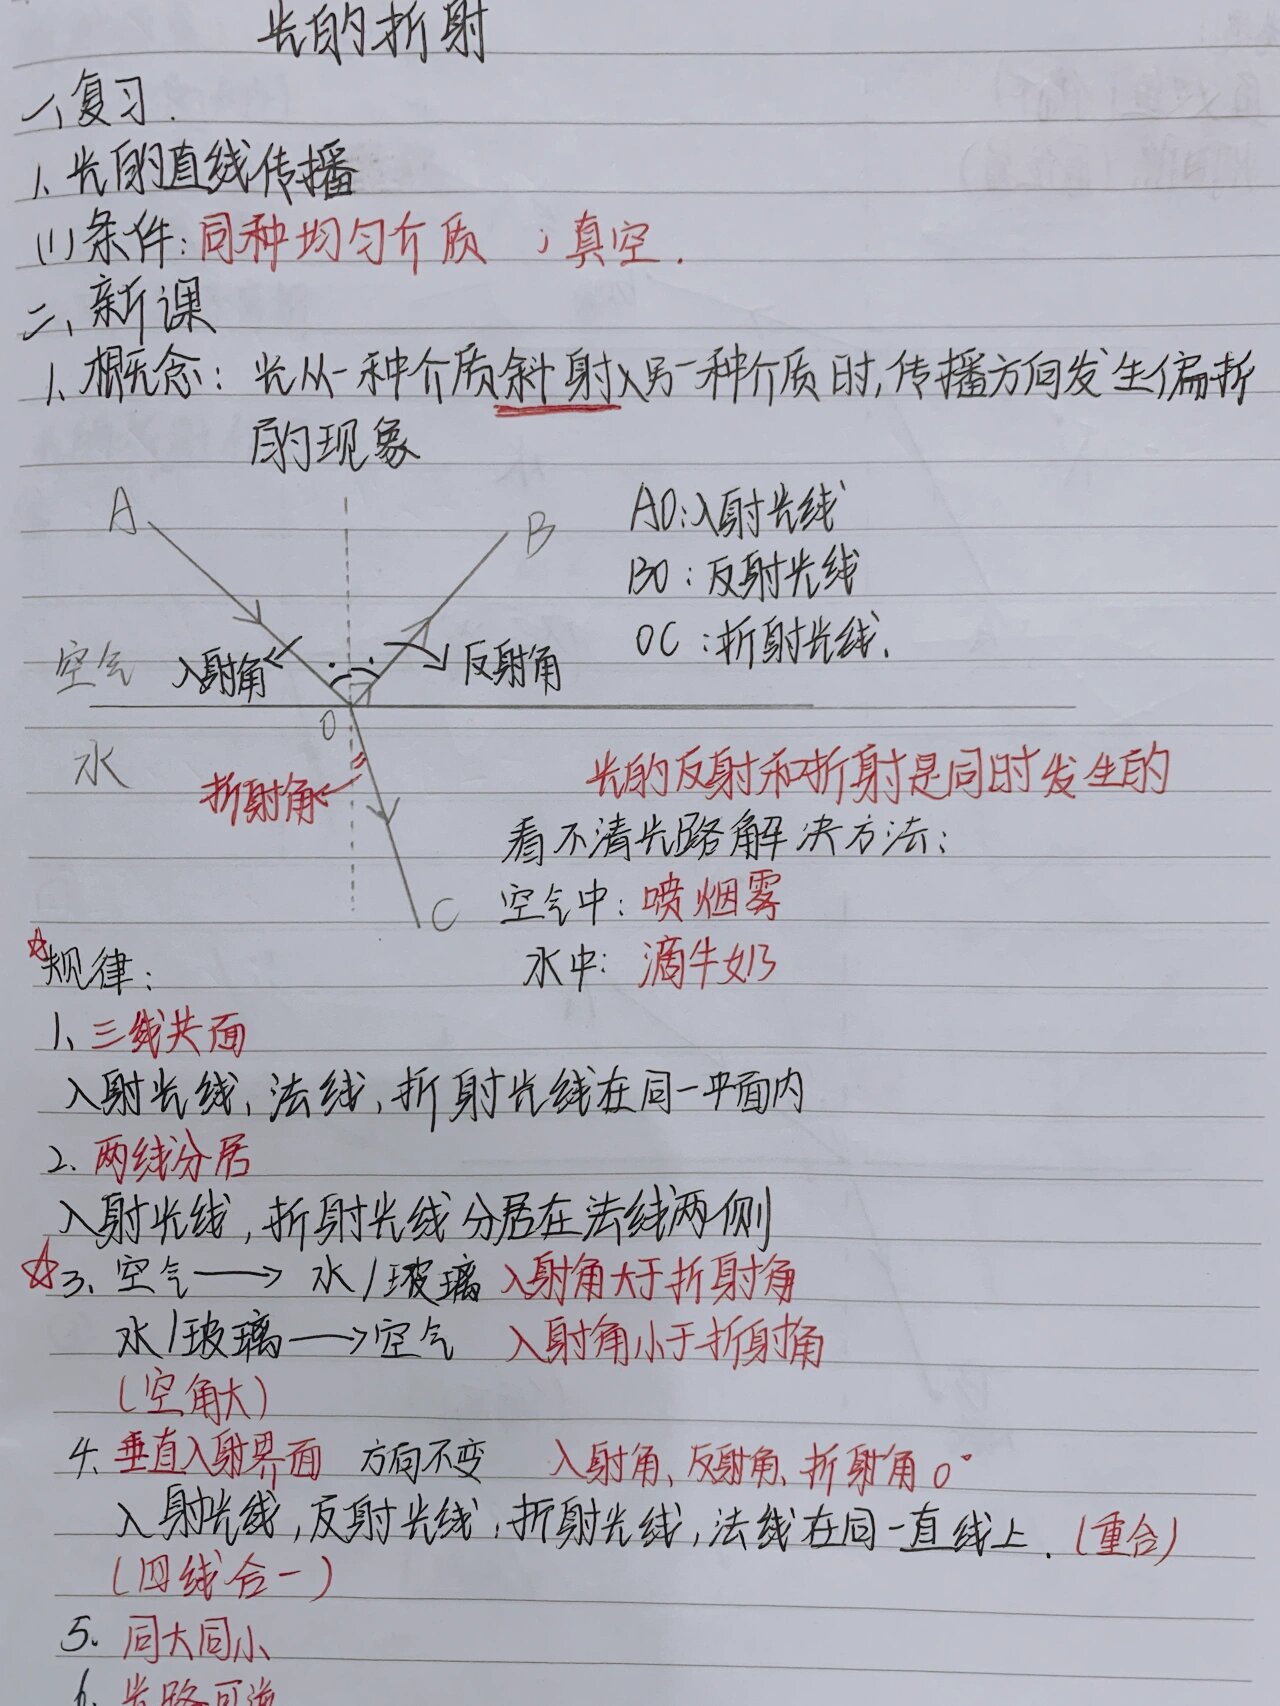 光的折射
一、复习.
1、光的直线传播
(1)条件:同种均匀介质 ;真空.
二、新课
1、概念:光从一种介质斜射入另一种介质时,传播方向发生偏折
的现象
A
B
AO:入射光线
BO:反射光线
OC:折射光线.
空气
入射角
反射角
O
水
折射角
C
光的反射和折射是同时发生的
看不清光路解决方法:
空气中:喷烟雾
水中:滴牛奶
☆规律:
1、三线共面
入射光线,法线,折射光线在同一平面内
2、两线分居
入射光线,折射光线分居在法线两侧
☆3、空气→水/玻璃 入射角大于折射角
水/玻璃→空气 入射角小于折射角
(空角大)
4、垂直入射界面 方向不变 入射角、反射角、折射角0°
入射光线,反射光线,折射光线,法线在同一直线上.(重合)
(四线合一)
5、同大同小
6、光路可逆